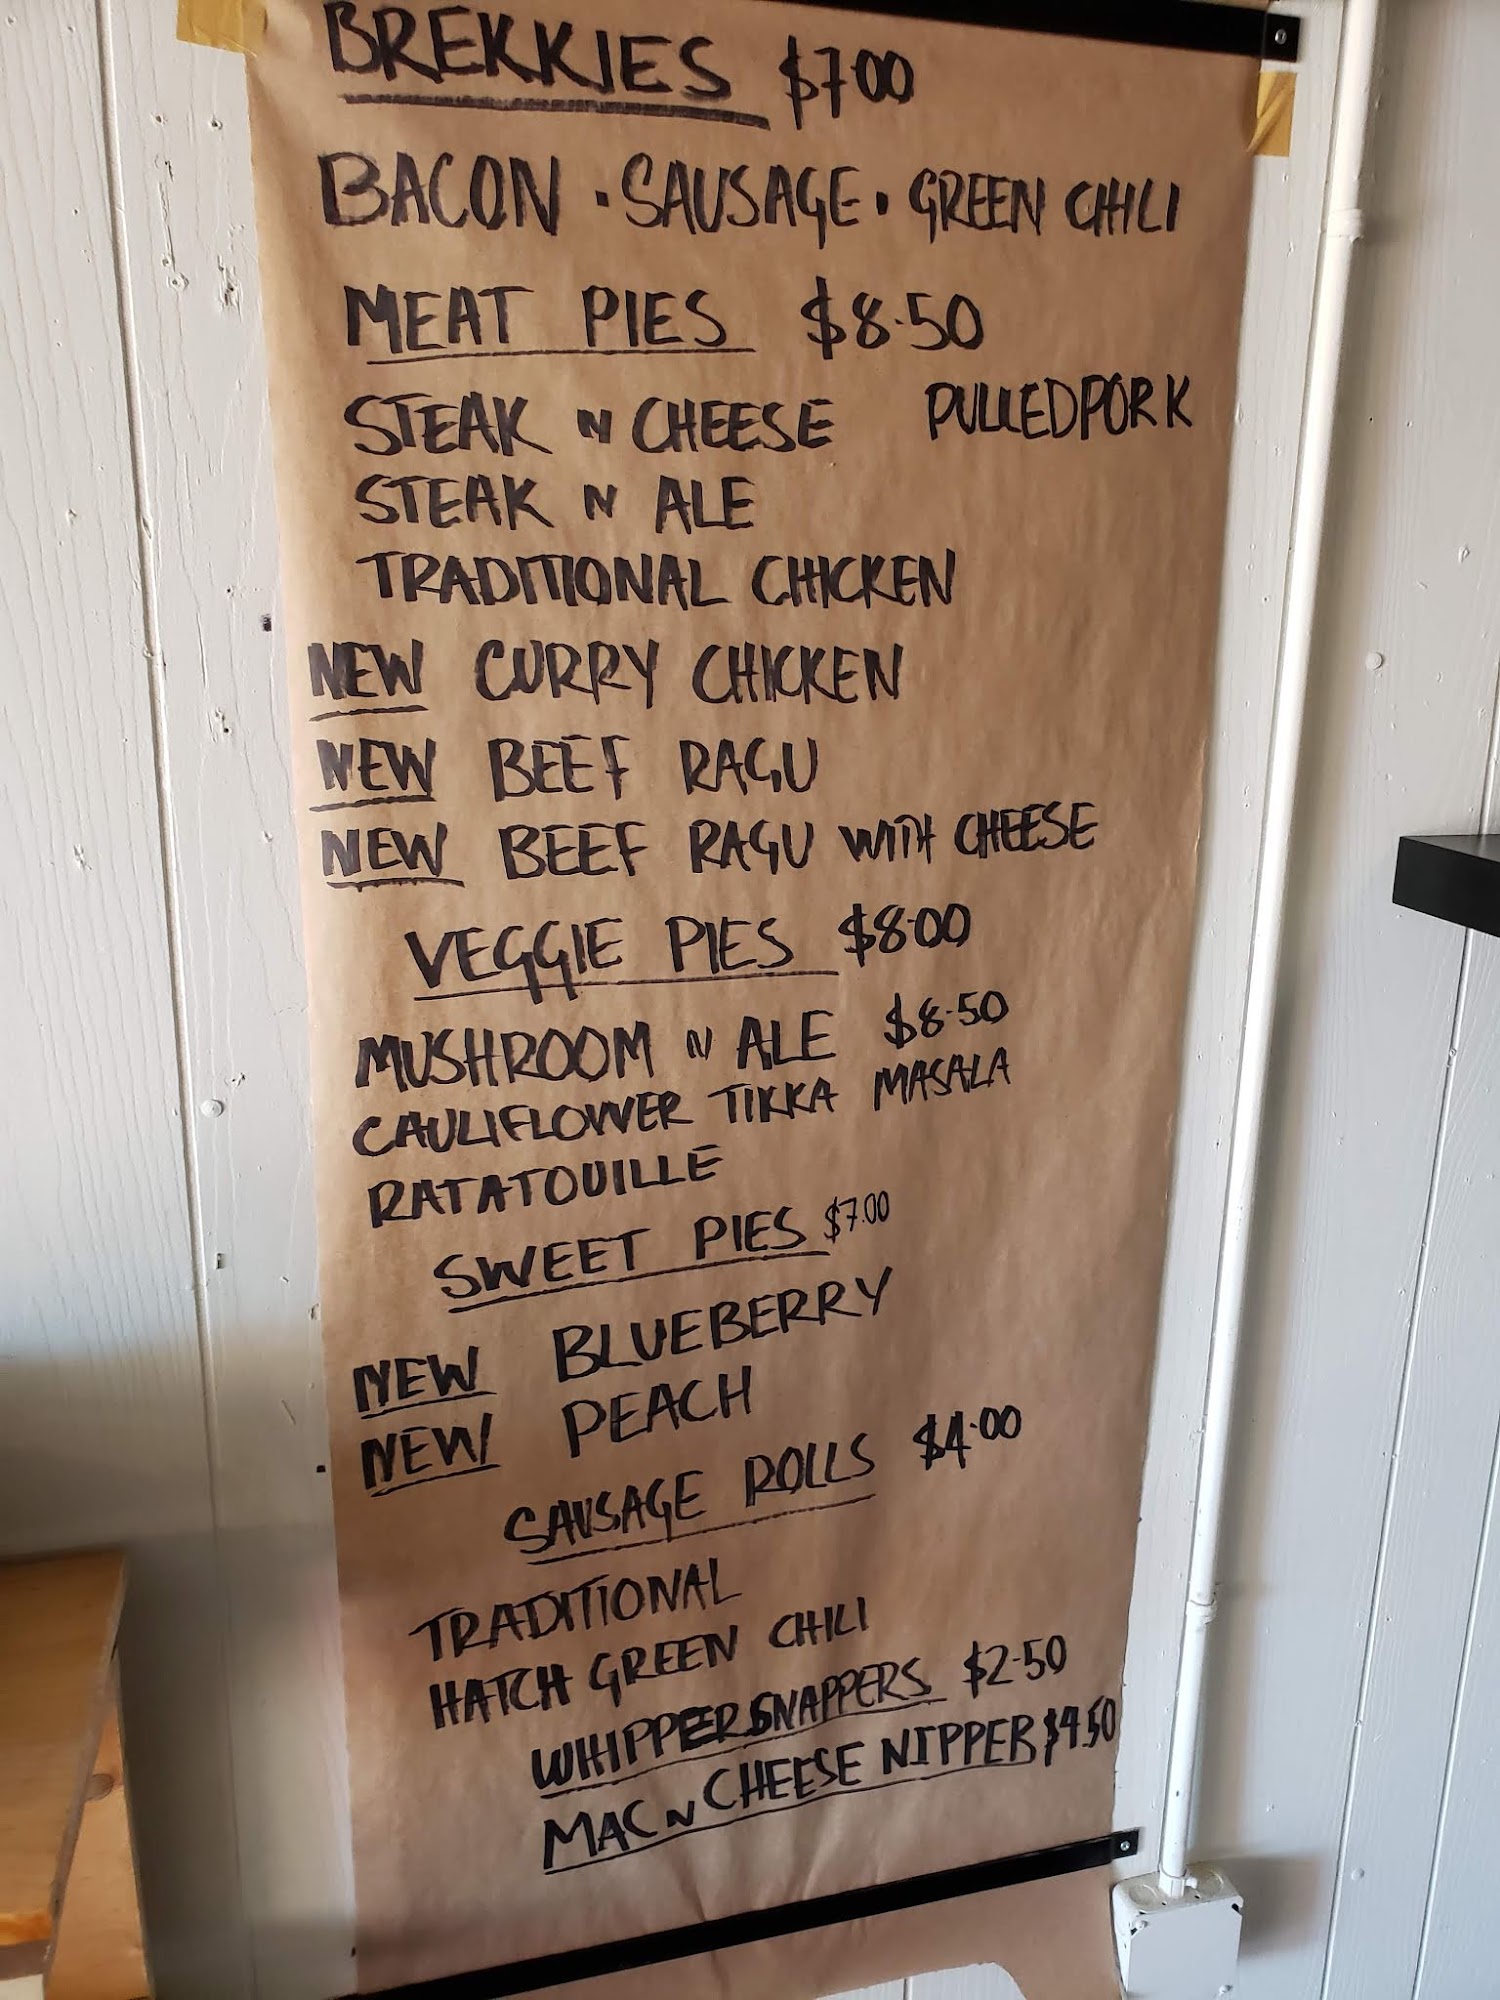 BREKKIES $7.00
BACON · SAUSAGE · GREEN CHILI
MEAT PIES $8.50
STEAK N CHEESE PULLED PORK
STEAK N ALE
TRADITIONAL CHICKEN
NEW CURRY CHICKEN
NEW BEEF RAGU
NEW BEEF RAGU WITH CHEESE
VEGGIE PIES $8.00
MUSHROOM N ALE $8.50
CAULIFLOWER TIKKA MASALA
RATATOUILLE
SWEET PIES $7.00
NEW BLUEBERRY
NEW PEACH
SAUSAGE ROLLS $4.00
TRADITIONAL
HATCH GREEN CHILI
WHIPPERSNAPPERS $2.50
MAC N CHEESE NIPPER $4.50